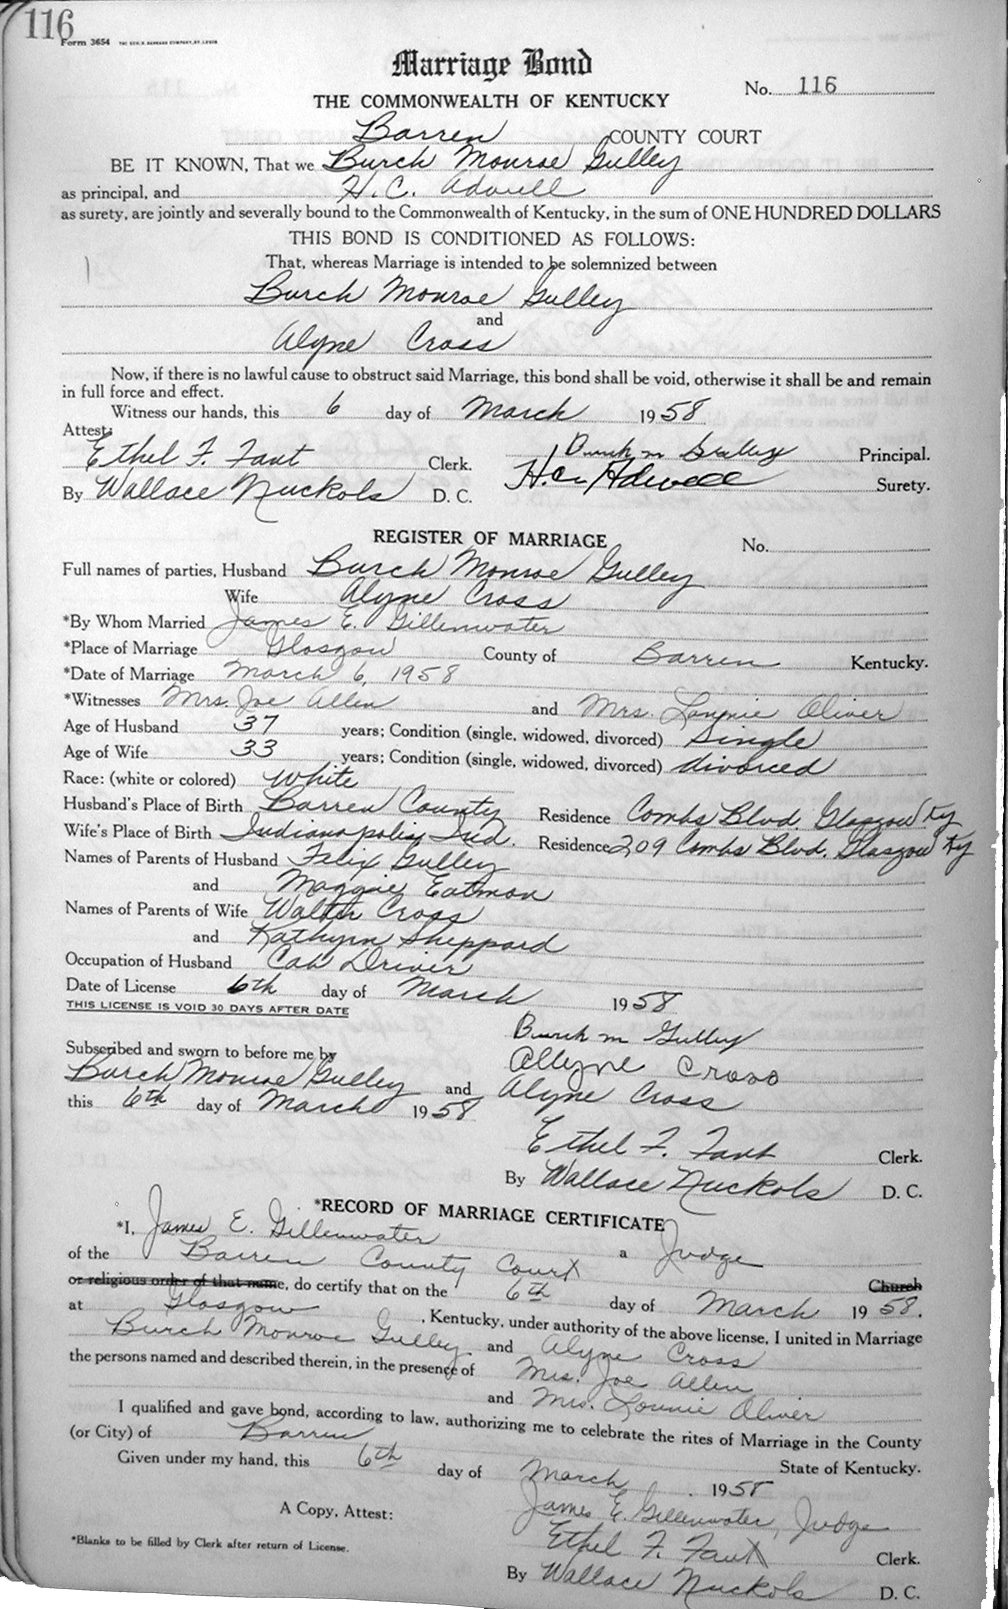 116
Form 3654 THE GEO. D. BARNARD COMPANY, ST. LOUIS
Marriage Bond
No. 116
THE COMMONWEALTH OF KENTUCKY
Barren COUNTY COURT
BE IT KNOWN, That we Burch Monroe Gulley
as principal, and H. C. Adwell
as surety, are jointly and severally bound to the Commonwealth of Kentucky, in the sum of ONE HUNDRED DOLLARS
THIS BOND IS CONDITIONED AS FOLLOWS:
That, whereas Marriage is intended to be solemnized between
Burch Monroe Gulley
and
Alyne Cross
Now, if there is no lawful cause to obstruct said Marriage, this bond shall be void, otherwise it shall be and remain
in full force and effect.
Witness our hands, this 6 day of March 1958
Attest:
Ethel F. Fant Clerk. Burch m Gulley Principal.
By Wallace Nuckols D. C. H. C. Adwell Surety.
REGISTER OF MARRIAGE No.
Full names of parties, Husband Burch Monroe Gulley
Wife Alyne Cross
*By Whom Married James E. Gillenwater
*Place of Marriage Glasgow County of Barren Kentucky.
*Date of Marriage March 6, 1958
*Witnesses Mrs. Joe Allen and Mrs. Lonnie Oliver
Age of Husband 37 years; Condition (single, widowed, divorced) Single
Age of Wife 33 years; Condition (single, widowed, divorced) divorced
Race: (white or colored) White
Husband's Place of Birth Barren County Residence Combs Blvd. Glasgow Ky
Wife's Place of Birth Indianapolis, Ind. Residence 209 Combs Blvd. Glasgow Ky
Names of Parents of Husband Felix Gulley
and Maggie Eatmon
Names of Parents of Wife Walter Cross
and Kathyrn Sheppard
Occupation of Husband Cab Driver
Date of License 6th day of March 1958
THIS LICENSE IS VOID 30 DAYS AFTER DATE
Burch m Gulley
Subscribed and sworn to before me by Allyne Cross
Burch Monroe Gulley and Alyne Cross
this 6th day of March 1958
Ethel F. Fant Clerk.
By Wallace Nuckols D. C.
*RECORD OF MARRIAGE CERTIFICATE
*I, James E. Gillenwater a Judge
of the Barren County Court Church
or religious order of that name, do certify that on the 6th day of March 1958.
at Glasgow, Kentucky, under authority of the above license, I united in Marriage
Burch Monroe Gulley and Alyne Cross
the persons named and described therein, in the presence of Mrs. Joe Allen
and Mrs. Lonnie Oliver
I qualified and gave bond, according to law, authorizing me to celebrate the rites of Marriage in the County
(or City) of Barren State of Kentucky.
Given under my hand, this 6th day of March 1958
James E. Gillenwater, Judge
A Copy, Attest: Ethel F. Fant Clerk.
*Blanks to be filled by Clerk after return of License.
By Wallace Nuckols D. C.